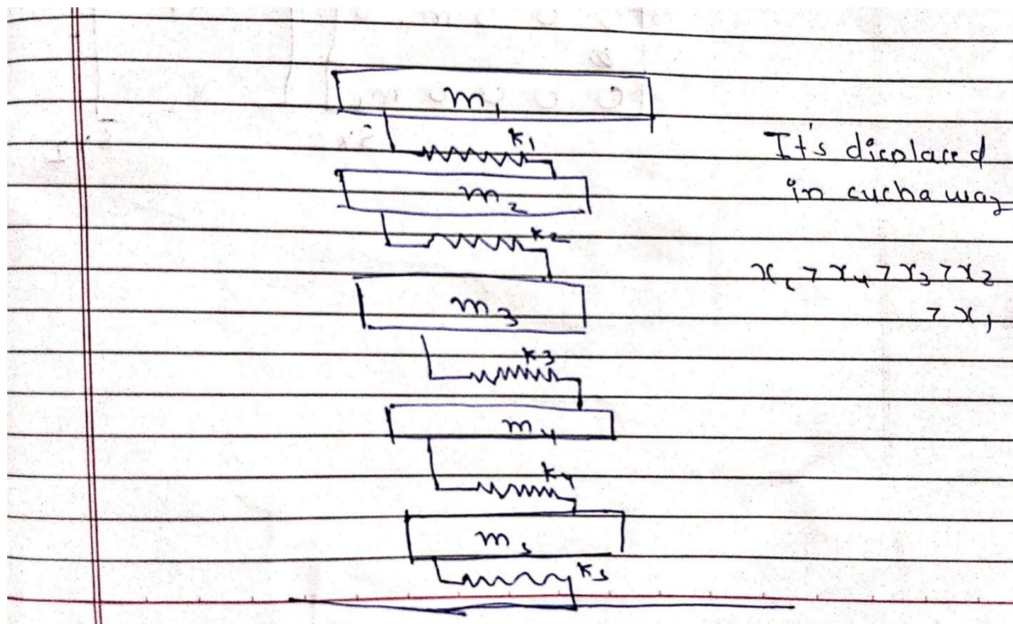 m₁
k₁
m₂
k₂
m₃
k₃
m₄
k₄
m₅
k₅
It's displaced
in such a way
x₅ > x₄ > x₃ > x₂
> x₁